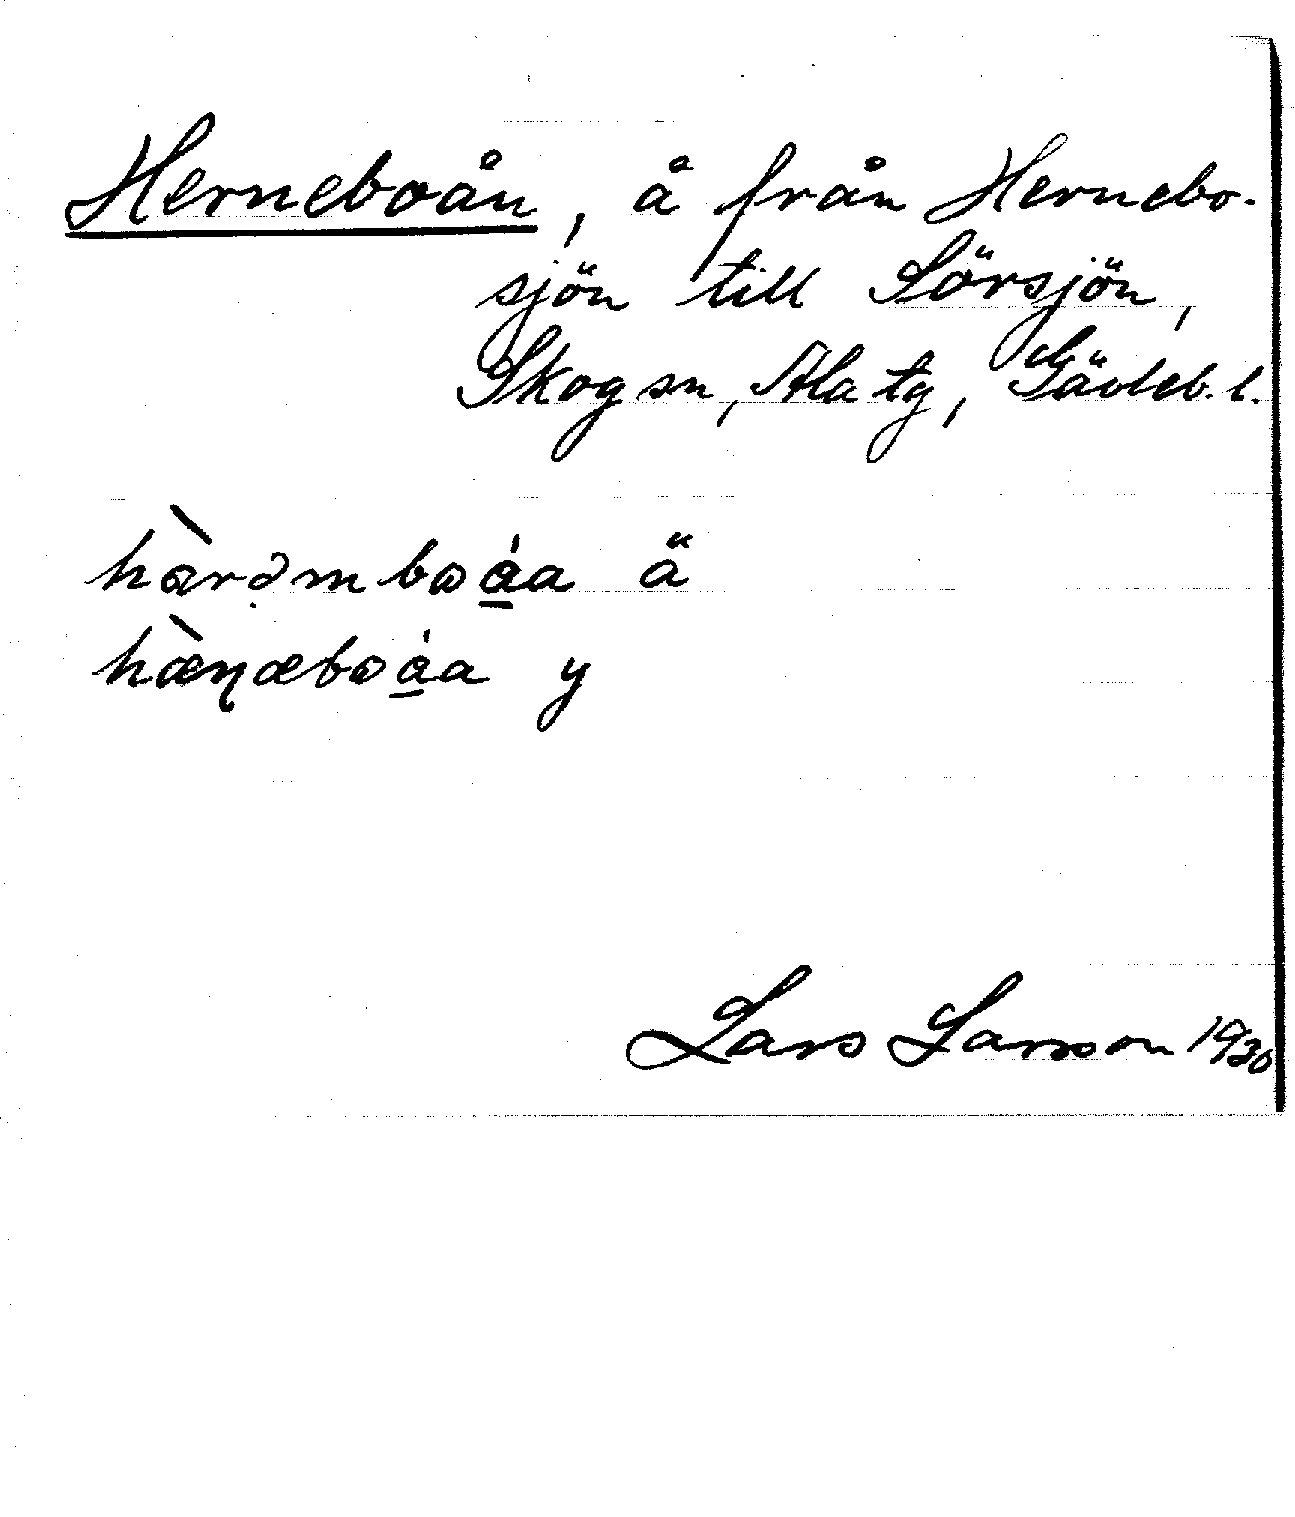 Herneboån, å från Hernebo-
sjön till Sörsjön,
Skog sn, Ala tg, Gävleb. l.
hæ̀rəmbωǻa ä
hæ̀ɳæbωǻa y
Lars Larsson 1930